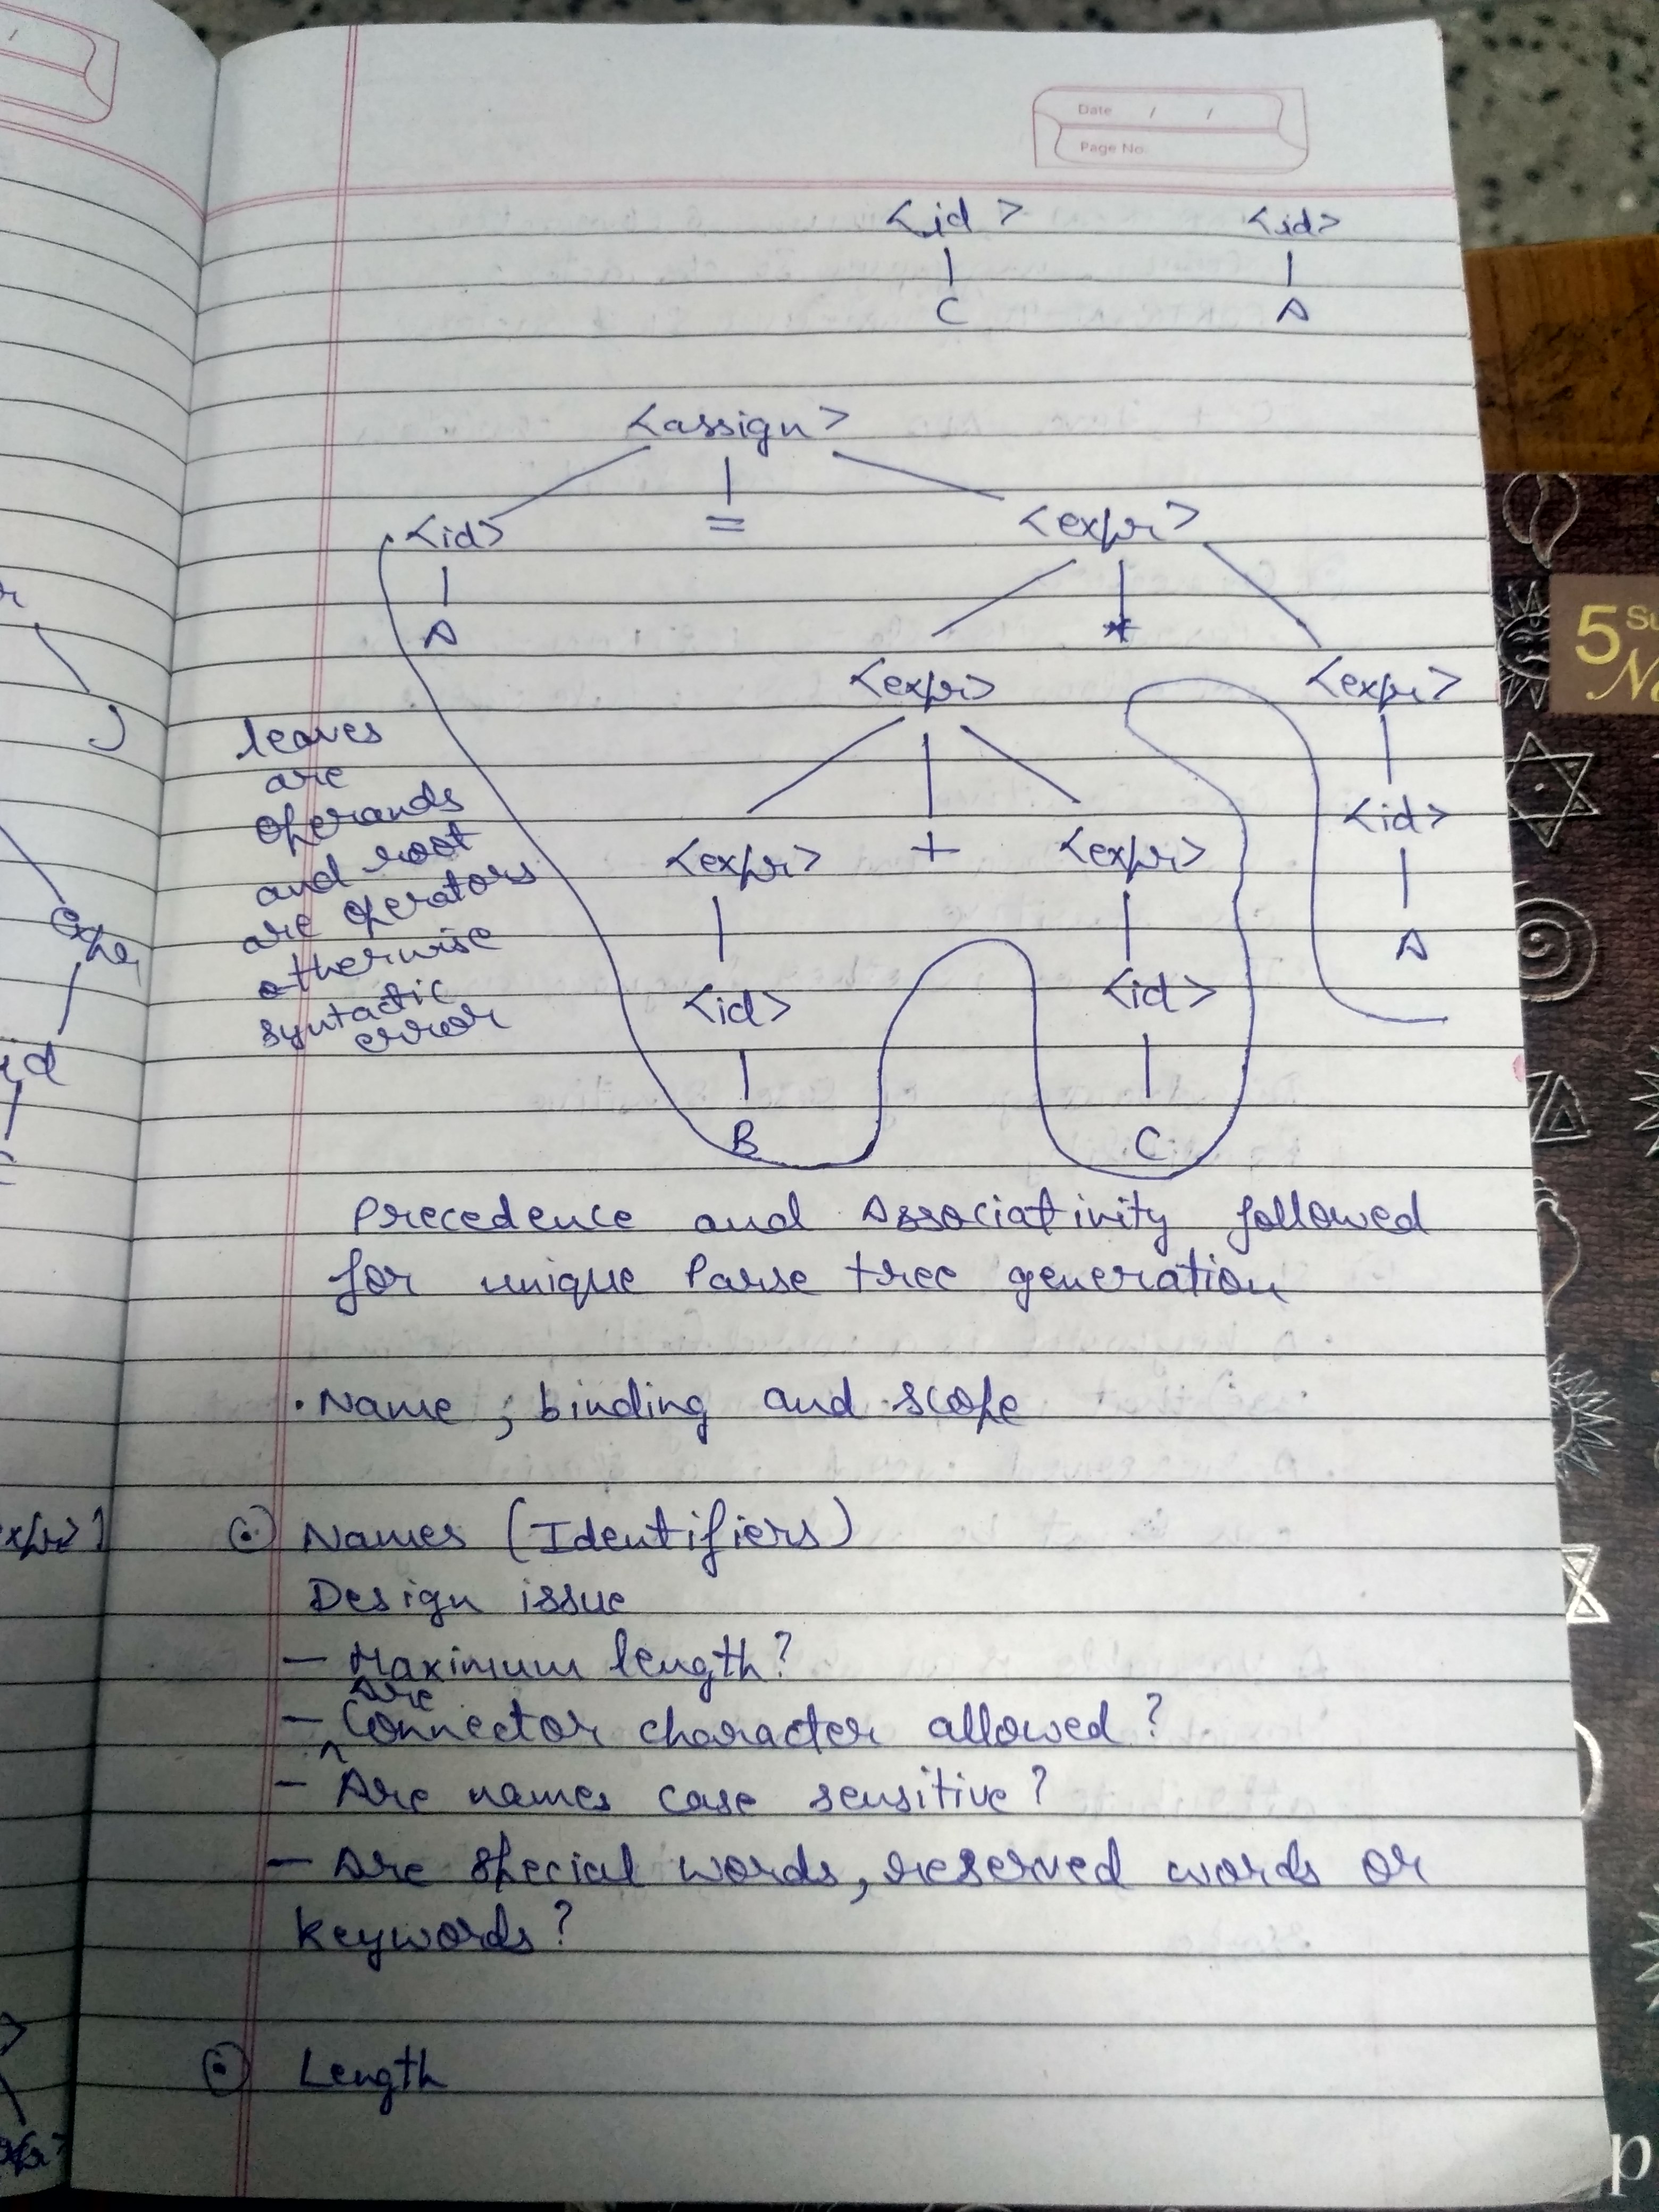 Date / /
Page No.
<id> <id>
C A
<assign>
<id> = <expr>
A *
<expr> <expr>
leaves
are
operands
and root
are operators
otherwise
syntactic
error
<id>
<expr> + <expr>
A
<id> <id>
B C
Precedence and Associativity followed
for unique Parse tree generation
. Name , binding and scope
Names (Identifiers)
Design issue
- Maximum length?
Are
- Connector character allowed ?
- Are names case sensitive ?
- Are special words, reserved words or
keywords ?
Length
5 Su
No
p